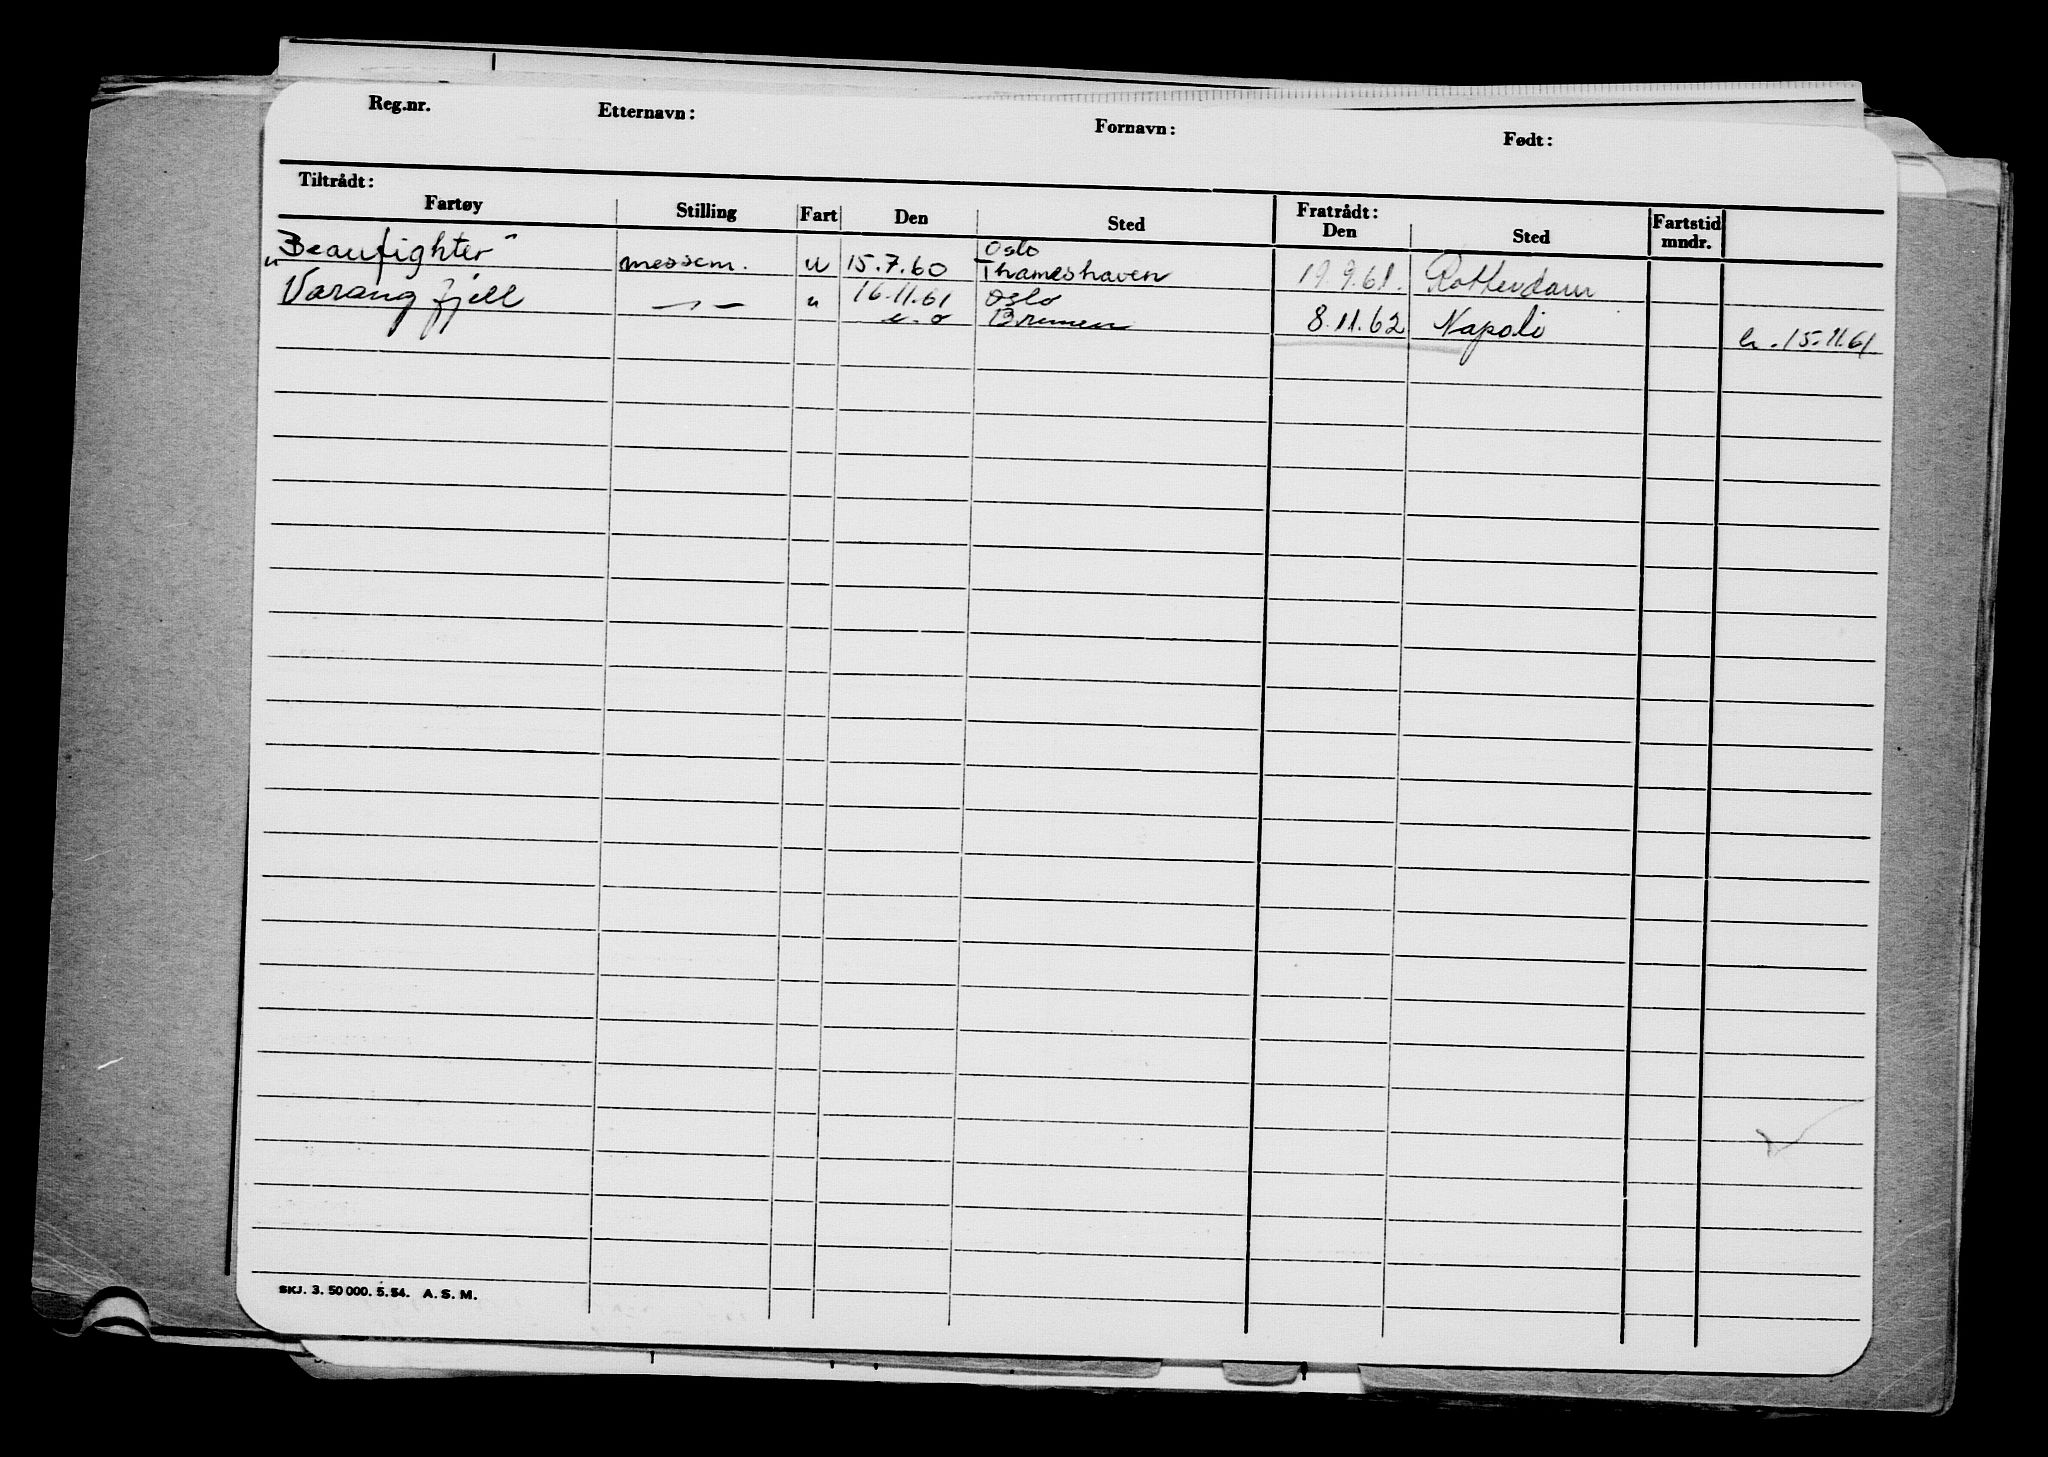 Reg.nr. Etternavn: Fornavn: Født:
Tiltrådt: Fratrådt:
Fartøy Stilling Fart Den Sted Den Sted Fartstid mndr.
"Beaufighter" messem. u 15.7.60 Oslo Thameshaven 19.9.61. Rotterdam
Varangfjell —〃— " 16.11.61 Oslo
Bremen 8.11.62 Napoli 15.11.61
SKJ. 3. 50 000. 5. 54. A. S. M.